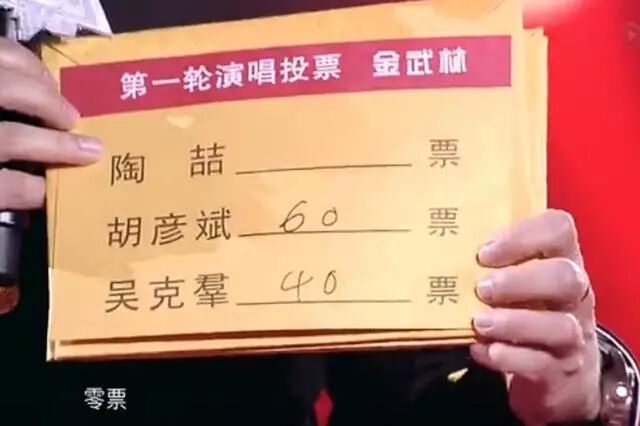 第一轮演唱投票 金武林
陶 喆______票
胡彦斌 60 票
吴克羣 40 票
零票